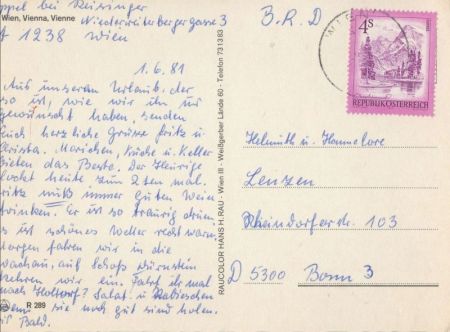 ppel bei Reisinger
Wien, Vienna, Vienne
Niederreiterbergergasse 3
A 1238 Wien
1.6.81
Aus unserem Urlaub, der
so ist, wie wir ihn uns
gewünscht haben, senden
Euch herzliche Grüsse Fritz u.
Christa. Marichen, Küche u. Keller
bieten das Beste. Der Heurige
lockt heute zum 2ten mal.
Fritz muß immer guten Wein
trinken. Er ist so traurig drum
s ist schönes Wetter recht warm.
orgen fahren wir in die
Wachau, auf Schloß Dürnstein
kehren wir ein. Fahrt ihr mal
nach Holtorf? Salat u. Radieschen
wenn sie noch gut sind holen.
is Bald.
R 289
RAUCOLOR HANS H. RAU - Wien III - Weißgerber Lände 60 - Telefon 73 13 83
B.R.D
4S
REPUBLIK ÖSTERREICH
Helmuth u. Hannelore
Lenzen
Rheindorferstr. 103
D 5300 Bonn 3